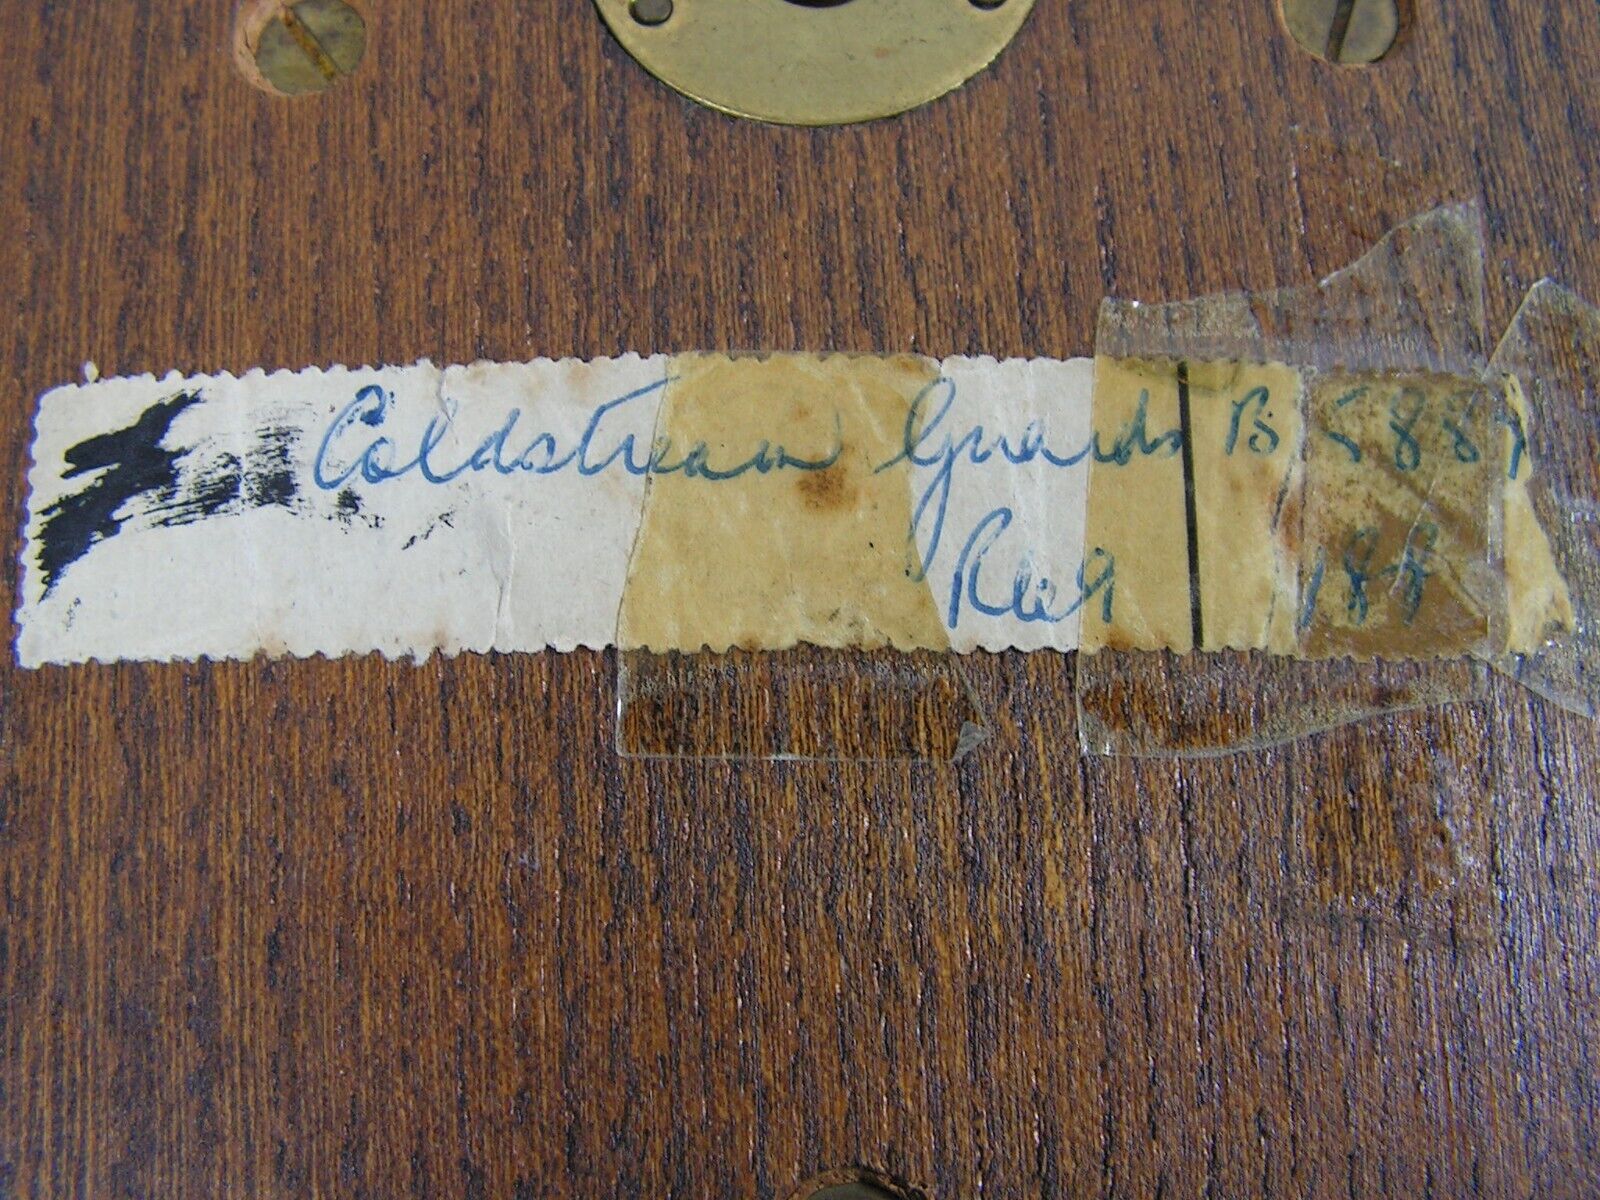 Coldstream Guards B 8889
188